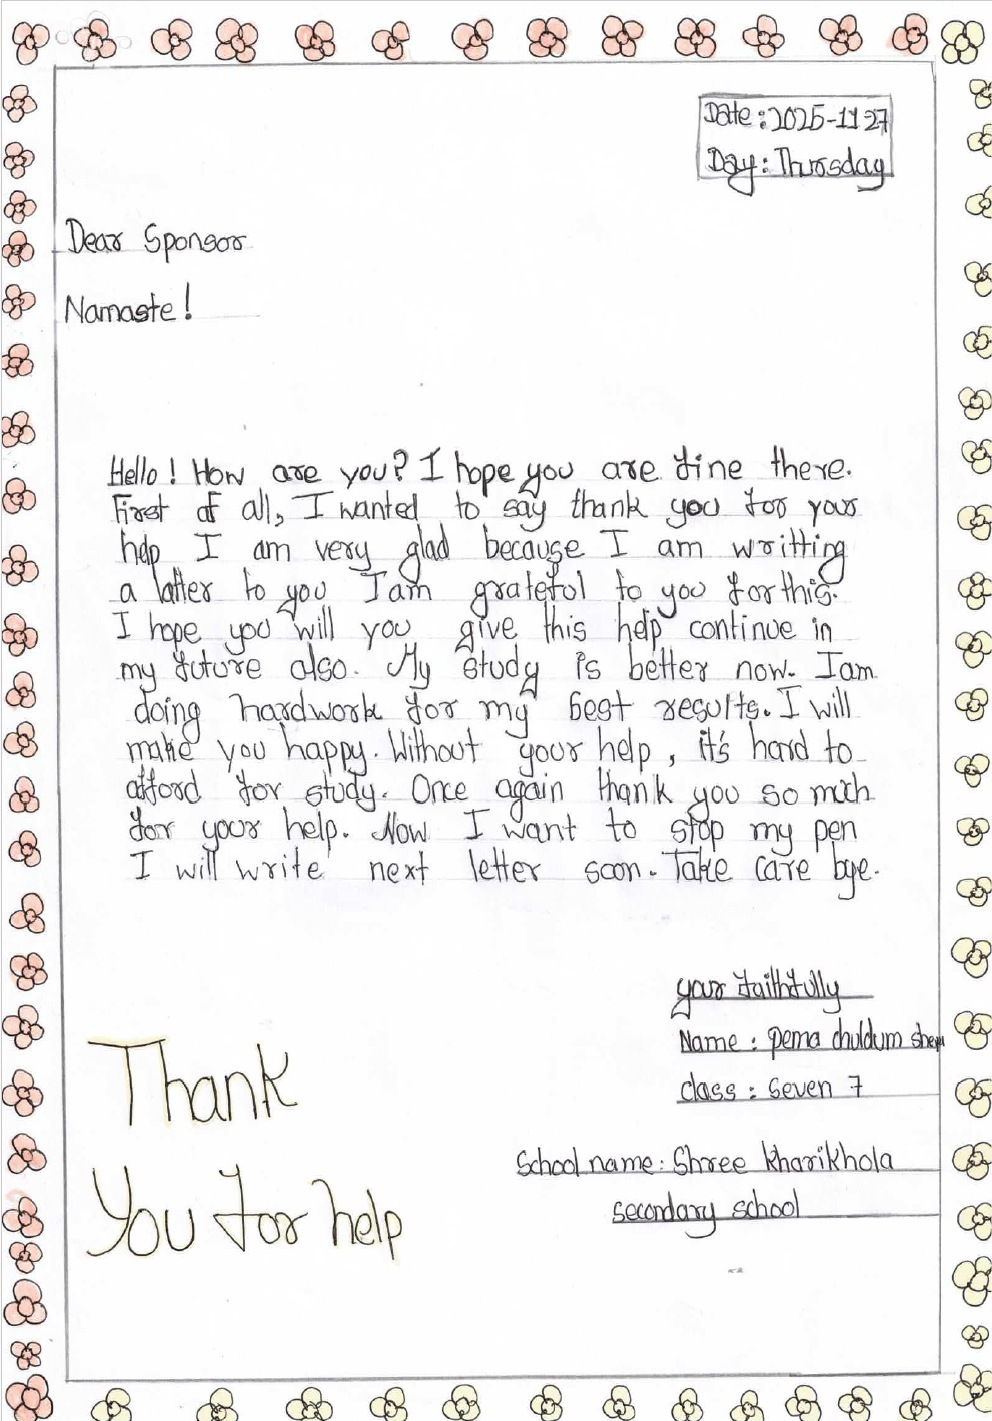 Date: 2025-11 27
Day: Thursday
Dear Sponsor
Namaste!
Hello! How are you? I hope you are fine there.
First of all, I wanted to say thank you for your
help I am very glad because I am writting
a latter to you I am grateful to you for this.
I hope you will you give this help continue in
my future also. My study is better now. I am
doing hardwork for my best results. I will
make you happy. Without your help, it's hard to
afford for study. Once again thank you so much
for your help. Now I want to stop my pen
I will write next letter soon. Take care bye.
your faithfully
Name: pema chuldum
class: seven 7
School name: Shree kharikhola
secondary school
Thank
You for help